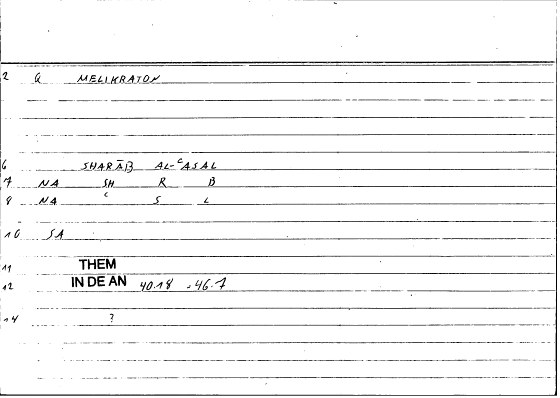 2 G MELIKRATON
6 SHARĀB AL-ʿASAL
7 NA SH R B
8 NA ʿ S L
10 SA
11 THEM
12 IN DE AN 40.18 - 46.7
14 ?